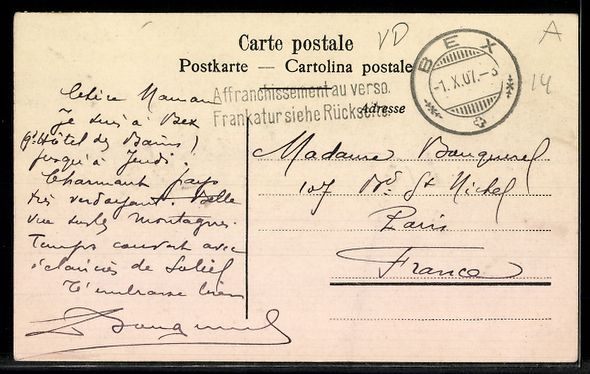 Carte postale
Postkarte — Cartolina postale
Affranchissement au verso.
Frankatur siehe Rückseite.
Adresse
BEX
-1.X.07.-3
VD
A
14
Maman
Je suis à Bex
Gd Hôtel des Bains)
jusqu'à Jeudi.
Charmant pays
très verdoyant. Belle
vue sur les montagnes.
Temps couvert avec
éclaircies de Soleil
T'embrasse bien
Madame Bouquerel
107 Bd St Michel
Paris
France